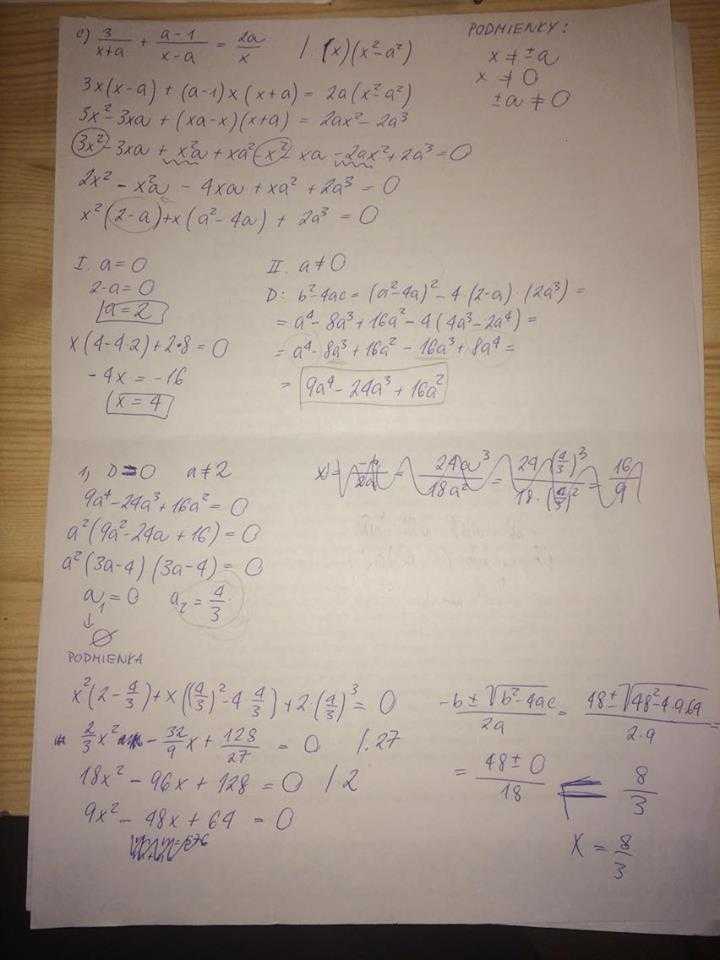 c) 3/(x+a) + (a-1)/(x-a) = 2a/x / (x)(x²-a²)
PODMIENKY:
x ≠ ±a
x ≠ 0
±a ≠ 0
3x(x-a) + (a-1)x(x+a) = 2a(x²-a²)
3x²-3xa + (xa-x)(x+a) = 2ax²-2a³
3x²-3xa + x²a + xa² - x² - xa - 2ax² + 2a³ = 0
2x² - x²a - 4xa + xa² + 2a³ = 0
x²(2-a) + x(a²-4a) + 2a³ = 0
I. a = 0
2-a = 0
a = 2
x(4-4·2) + 2·8 = 0
-4x = -16
x = 4
II. a ≠ 0
D: b²-4ac = (a²-4a)² - 4·(2-a)·(2a³) =
= a⁴ - 8a³ + 16a² - 4(4a³-2a⁴) =
= a⁴ - 8a³ + 16a² - 16a³ + 8a⁴ =
= 9a⁴ - 24a³ + 16a²
1, D = 0 a ≠ 2
9a⁴ - 24a³ + 16a² = 0
a²(9a² - 24a + 16) = 0
a²(3a-4)(3a-4) = 0
a₁ = 0 a₂ = 4/3
↓
∅
PODMIENKA
24a³/18a² = 24·(4/3)³/18·(4/3)² = 16/9
x²(2-4/3) + x((4/3)²-4 4/3) + 2·(4/3)³ = 0
2/3x² - 32/9 x + 128/27 = 0 /·27
18x² - 96x + 128 = 0 / 2
9x² - 48x + 64 = 0
(-b ± √(b²-4ac))/2a = (48 ± √(48²-4·9·64))/(2·9)
= (48 ± 0)/18 = 8/3
x = 8/3